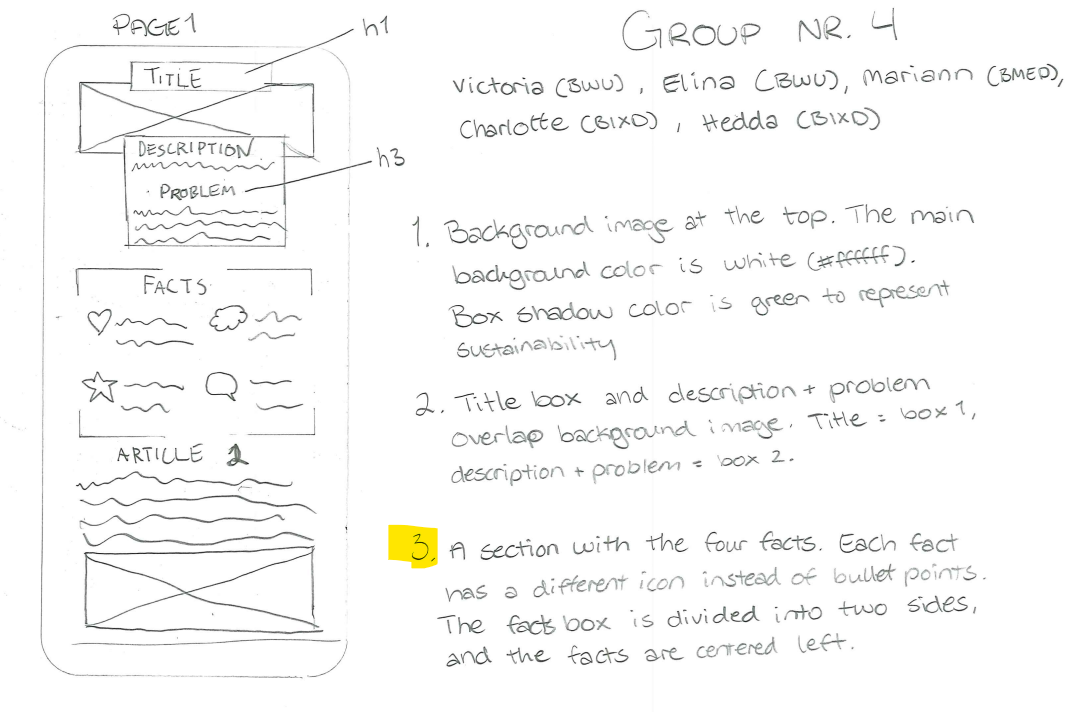 PAGE 1
h1
TITLE
DESCRIPTION
h3
· PROBLEM
FACTS
ARTICLE 2
GROUP NR. 4
Victoria (BWU), Elina (BWU), Mariann (BMED),
Charlotte (BIXD), Hedda (BIXD)
1. Background image at the top. The main
background color is white (#ffffff).
Box shadow color is green to represent
sustainability
2. Title box and description + problem
overlap background image. Title = box 1,
description + problem = box 2.
3. A section with the four facts. Each fact
has a different icon instead of bullet points.
The facts box is divided into two sides,
and the facts are centered left.